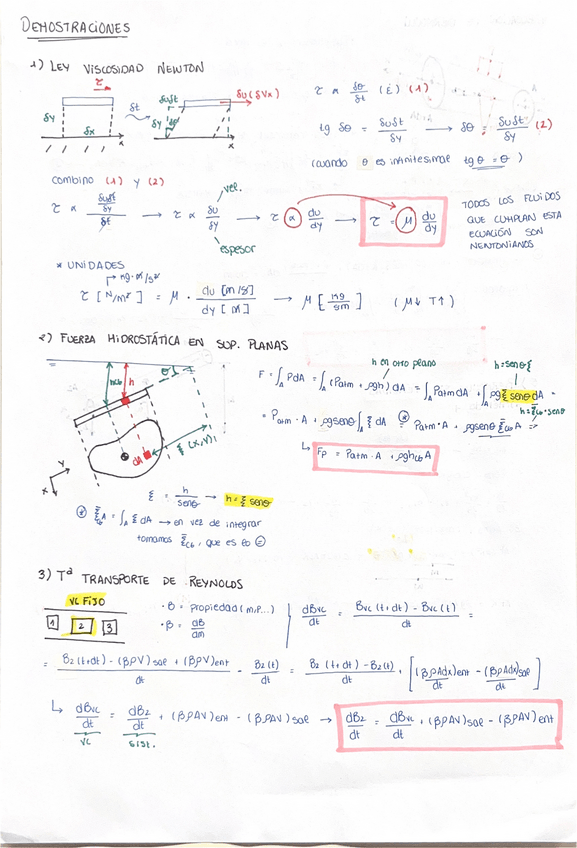 DEMOSTRACIONES
1) LEY VISCOSIDAD NEWTON
τ
δuδt
δu (δVx)
δy
δx
δt
δy
δθ
x
x
τ ∝ δθ/δt (ε̇) (1)
tg δθ = δuδt/δy → δθ = δuδt/δy (2)
(cuando θ es infinitesimal tgθ = θ)
combino (1) y (2)
vel.
τ ∝ (δuδt/δy)/δt → τ ∝ δu/δy → τ ∝ du/dy → τ = μ du/dy
espesor
TODOS LOS FLUIDOS
QUE CUMPLAN ESTA
ECUACIÓN SON
NEWTONIANOS
* UNIDADES
→ kg·m/s²
τ [N/m²] = μ · du [m/s]/dy [m] → μ [kg/sm] (μ↓ T↑)
2) FUERZA HIDROSTÁTICA EN SUP. PLANAS
hCG
h
θ
ξ
(x,y)
dA
y
x
h en otro plano
h = senθ ξ
F = ∫A PdA = ∫A (Patm + ρgh) dA = ∫A Patm dA + ∫A ρg ξ senθ dA =
h = ξCG · senθ
= Patm · A + ρg senθ ∫A ξ dA ⊛ Patm · A + ρg senθ ξCG A ⇒
↳ Fp = Patm · A + ρghCG A
ξ = h/senθ → h = ξ senθ
⊛ ξCG A = ∫A ξ dA → en vez de integrar
tomamos ξCG, que es lo =
3) Tª TRANSPORTE DE REYNOLDS
VC FIJO
1 2 3
· B = Propiedad (m, P...)
· β = dB/dm
dBVC/dt = BVC (t+dt) - BVC (t)/dt =
= B2 (t+dt) - (βρV)sal + (βρV)ent/dt - B2(t)/dt = B2 (t+dt) - B2(t)/dt + [(βρAdx)ent/dt - (βρAdx)sal/dt]
↳ dBVC/dt = dB2/dt + (βρAV)ent - (βρAV)sal → dB2/dt = dBVC/dt + (βρAV)sal - (βρAV)ent
VC
sist.